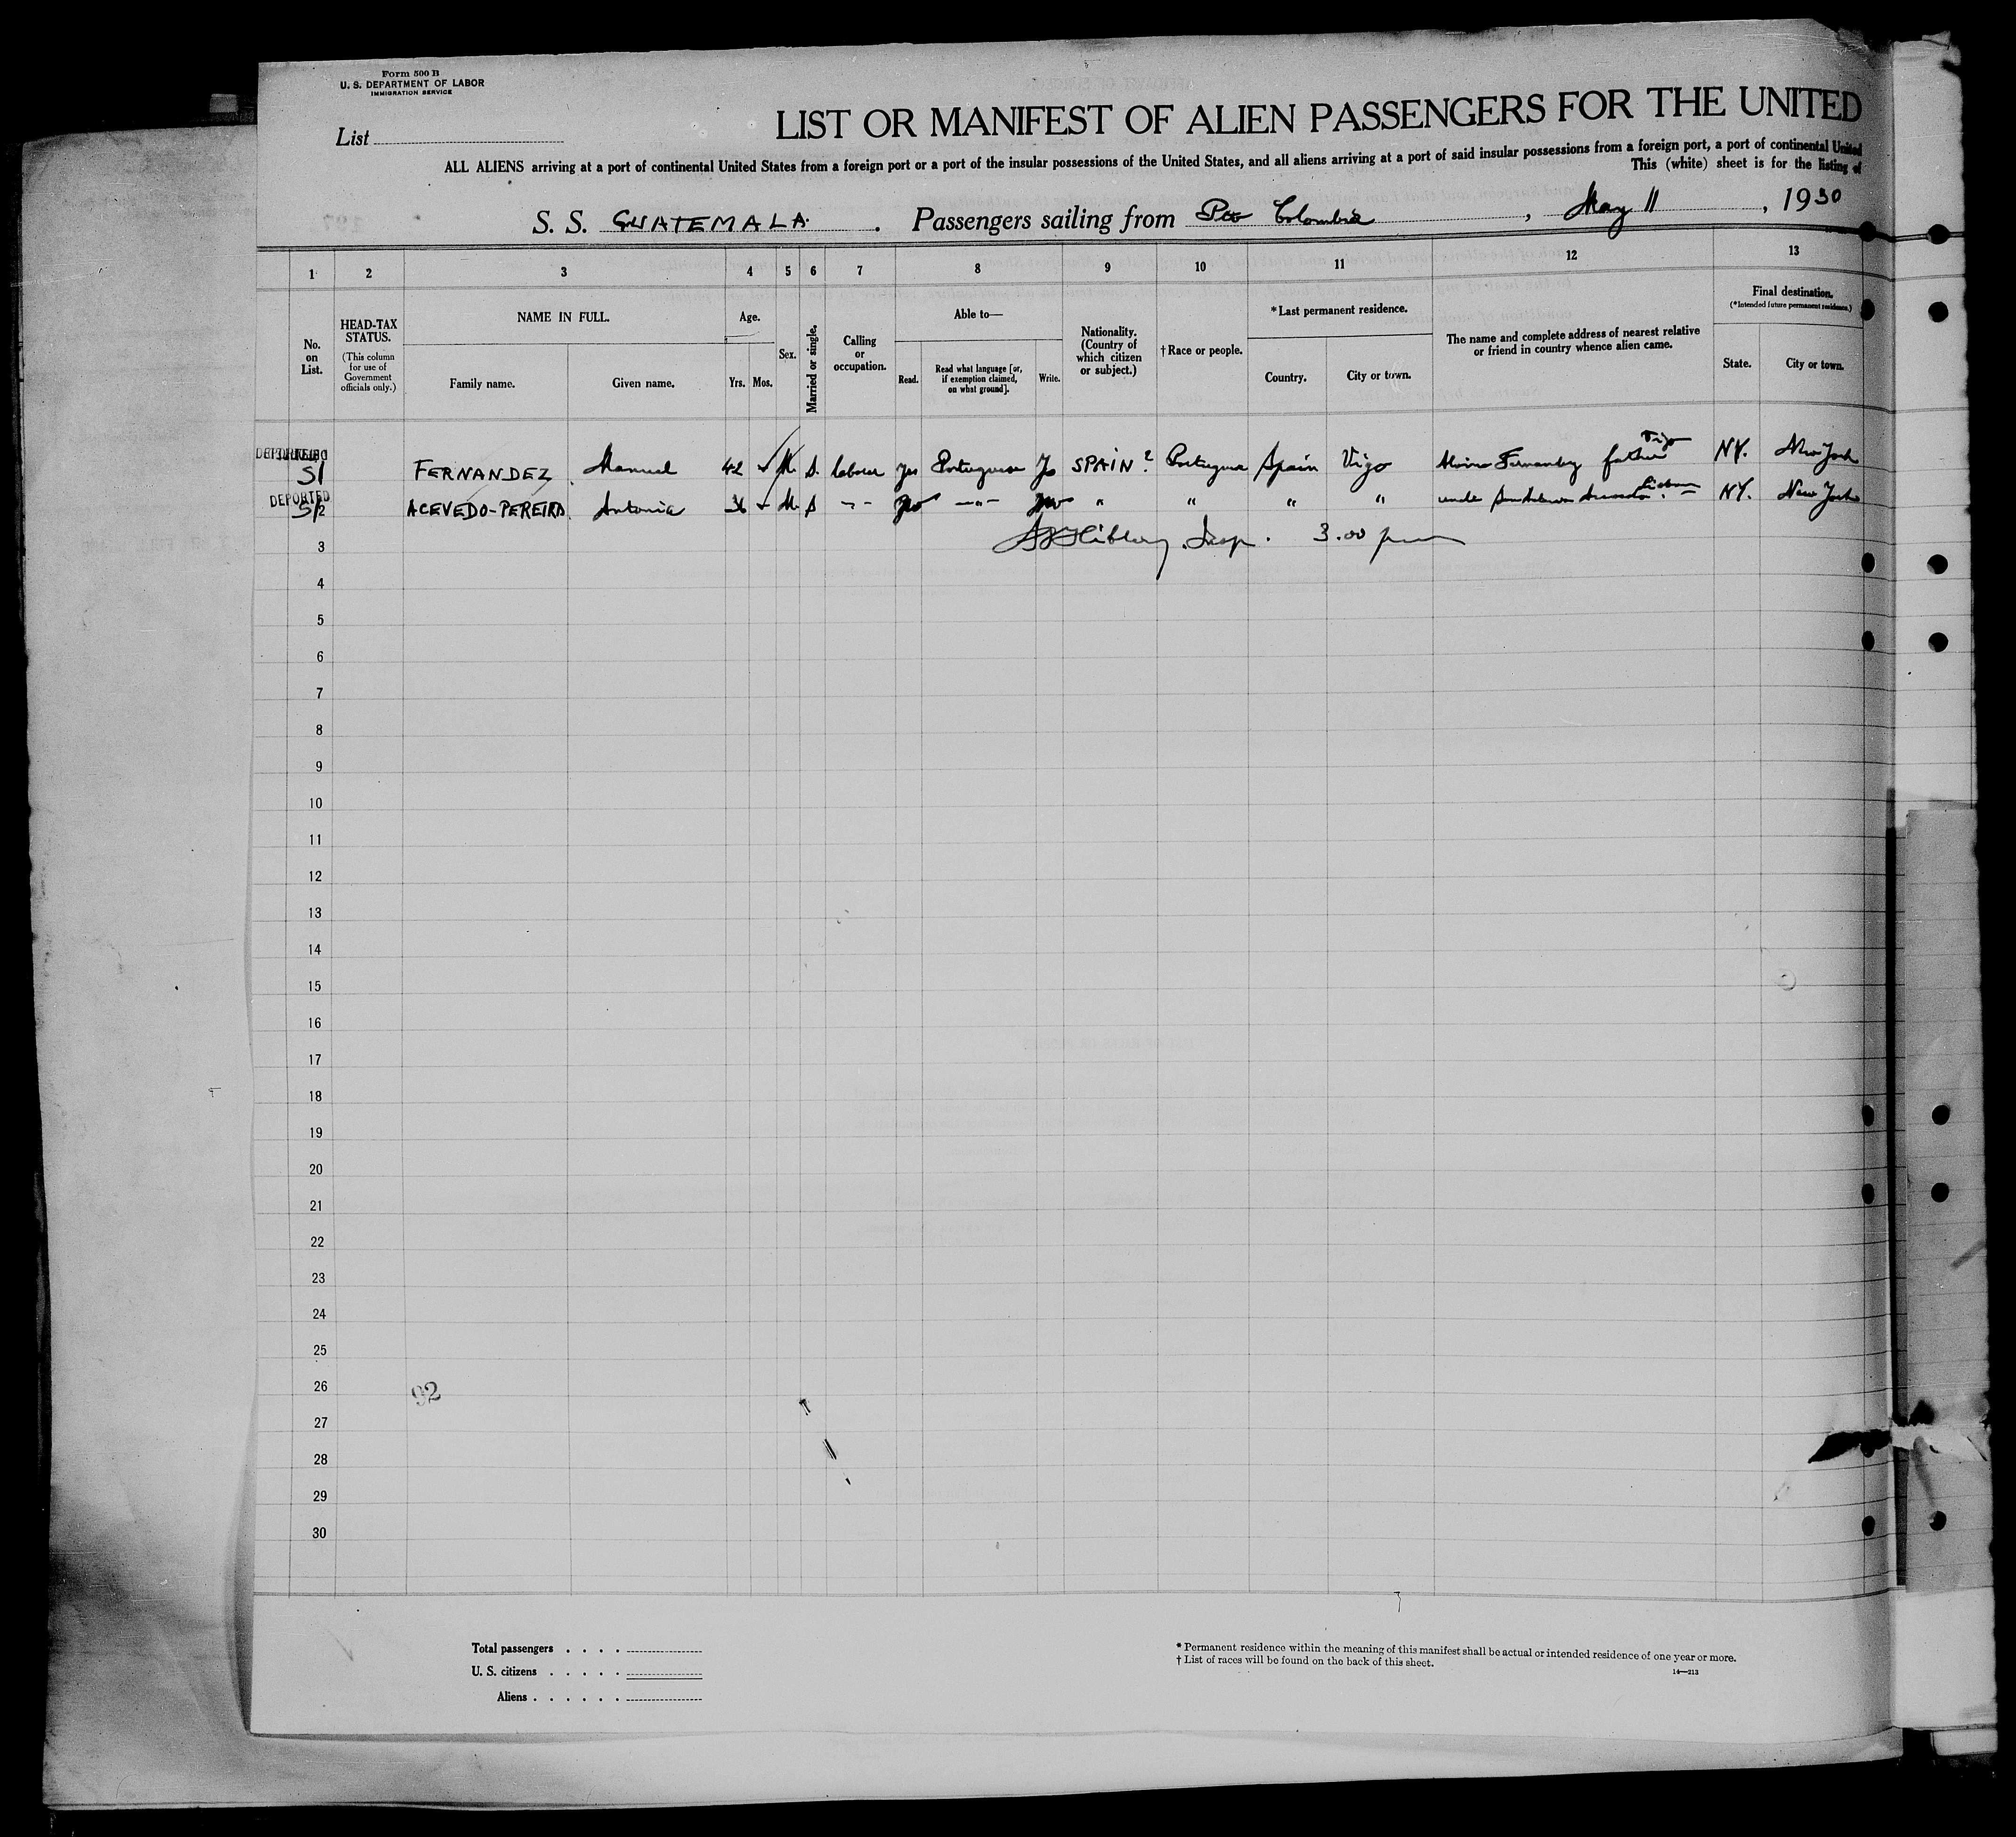 Form 500 B
U. S. DEPARTMENT OF LABOR
IMMIGRATION SERVICE
List
LIST OR MANIFEST OF ALIEN PASSENGERS FOR THE UNITED
ALL ALIENS arriving at a port of continental United States from a foreign port or a port of the insular possessions of the United States, and all aliens arriving at a port of said insular possessions from a foreign port, a port of continental United
This (white) sheet is for the listing of
S. S. GUATEMALA. Passengers sailing from Pto Colombia, May 11, 1930
1 2 3 4 5 6 7 8 9 10 11 12 13
No. on List.
HEAD-TAX STATUS.
(This column for use of Government officials only.)
NAME IN FULL.
Family name. Given name.
Age.
Yrs. Mos.
Sex.
Married or single.
Calling or occupation.
Able to—
Read. Read what language [or, if exemption claimed, on what ground]. Write.
Nationality. (Country of which citizen or subject.)
† Race or people.
* Last permanent residence.
Country. City or town.
The name and complete address of nearest relative or friend in country whence alien came.
Final destination.
(* Intended future permanent residence.)
State. City or town.
DEPORTED
S1 FERNANDEZ Manuel 42 M S labourer yes Portuguese SPAIN? Portuguese Spain Vigo Fernandez father Vigo NY. New York
DEPORTED
S/2 ACEVEDO-PEREIRA Antonio M S -- -"- " " " " Lisbon NY. New York
Insp. 3.00 pm
3
4
5
6
7
8
9
10
11
12
13
14
15
16
17
18
19
20
21
22
23
24
25
26
92
27
28
29
30
Total passengers . . . .
U. S. citizens . . . . .
Aliens . . . . . .
* Permanent residence within the meaning of this manifest shall be actual or intended residence of one year or more.
† List of races will be found on the back of this sheet.
14—213